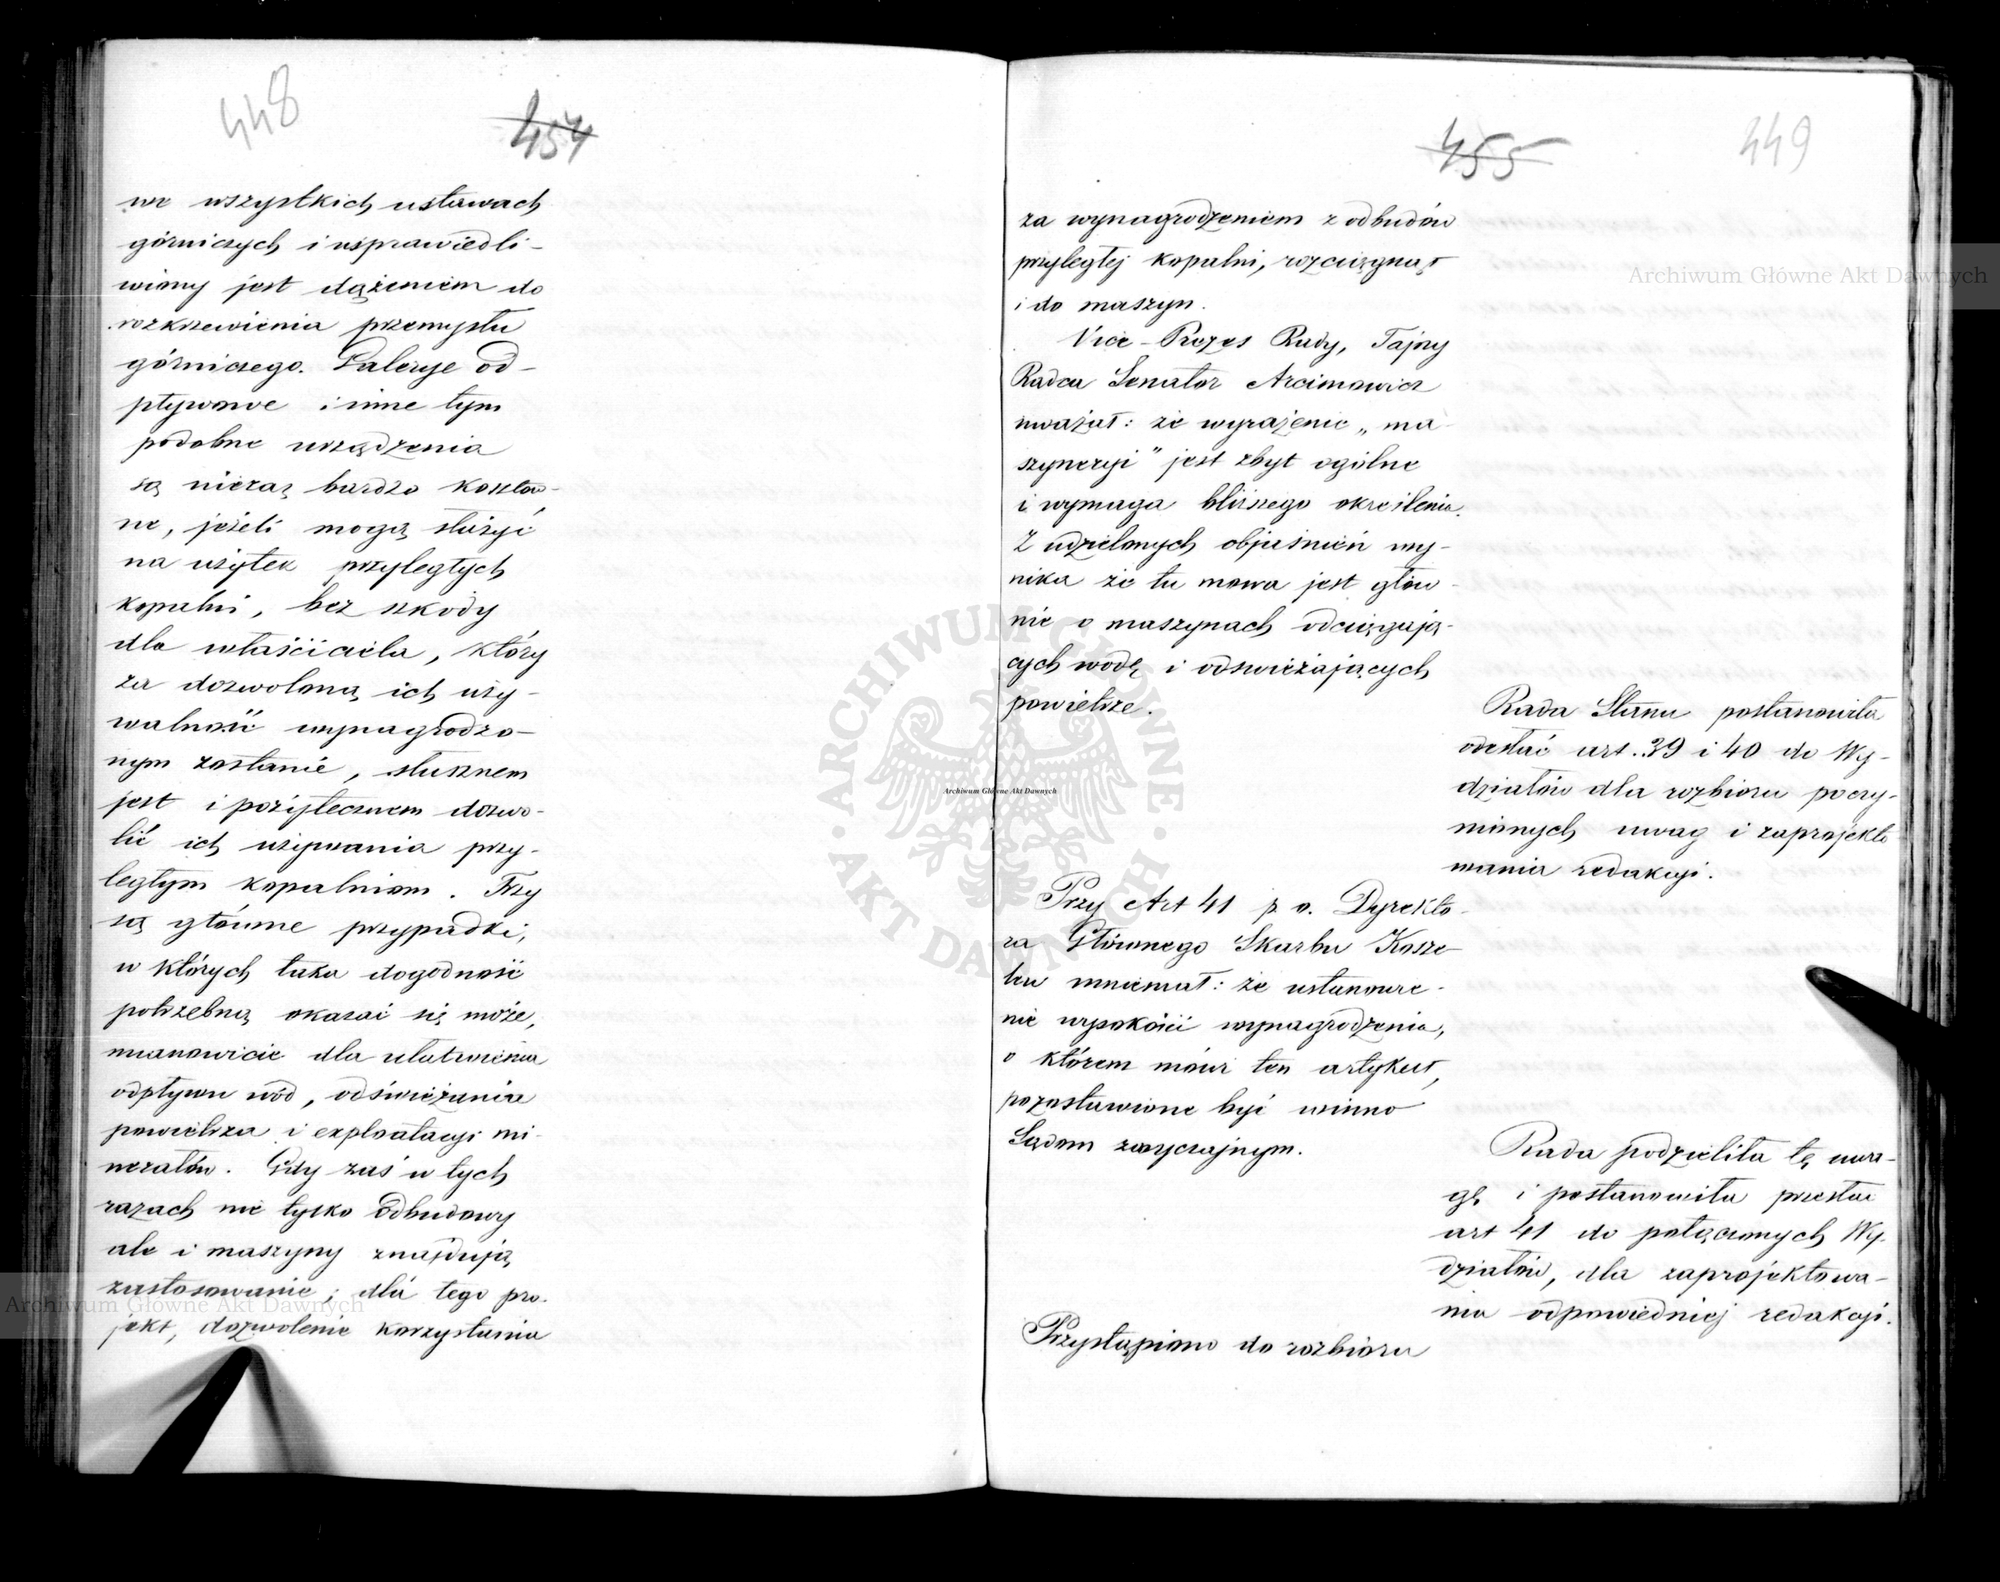 448
454
we wszystkich ustawach
górniczych i usprawiedli-
wiony jest dążeniem do
rozkrzewienia przemysłu
górniczego. Galerye od-
pływowe i inne tym
podobne urządzenia
są nieraz bardzo koszto-
ne, jeżeli mogą służyć
na użytek przyległych
kopalni, bez szkody
dla właściciela, który
za dozwoloną ich uży-
walność wynagrodzo-
nym zostanie, słusznem
jest i pożytecznem dozwo-
lić ich używania przy-
ległym kopalniom. Trzy
są główne przypadki,
w których taka dogodność
potrzebną okazać się może,
mianowicie dla ułatwienia
odpływu wód, odświeżania
powietrza i exploatacyi mi-
nerałów. Gdy zaś w tych
razach nie tylko odbudowy
ale i maszyny znajdują
zastosowanie; dla tego pro-
jekt, dozwolenie korzystania
455
449
za wynagrodzeniem z odbudów
przyległej kopalni, rozciągnął
i do maszyn.
Vice-Prezes Rady, Tajny
Radca Senator Arcimowicz
uważał: że wyrażenie „ma-
szyneryi" jest zbyt ogólne
i wymaga bliższego określenia.
Z udzielonych objaśnień wy-
nika że tu mowa jest głów-
nie o maszynach odciągają-
cych wodę i odświeżających
powietrze.
Rada Stanu postanowiła
odesłać art. 39 i 40 do Wy-
działów dla rozbioru poczy-
nionych uwag i zaprojekto
wania redakcyi.
Przy Art 41 p. o. Dyrekto-
ra Głównego Skarbu Kosze-
lew mniemał: że ustanowie-
nie wysokości wynagrodzenia,
o którem mówi ten artykuł,
pozostawione być winno
Sądom zwyczajnym.
Rada podzieliła tę uwa-
gę i postanowiła przesłać
art 41 do połączonych Wy-
działów, dla zaprojektowa-
nia odpowiedniej redakcyi.
Przystąpiono do rozbioru
Archiwum Główne Akt Dawnych
Archiwum Główne Akt Dawnych
Archiwum Główne Akt Dawnych
ARCHIWUM GŁÓWNE AKT DAWNYCH